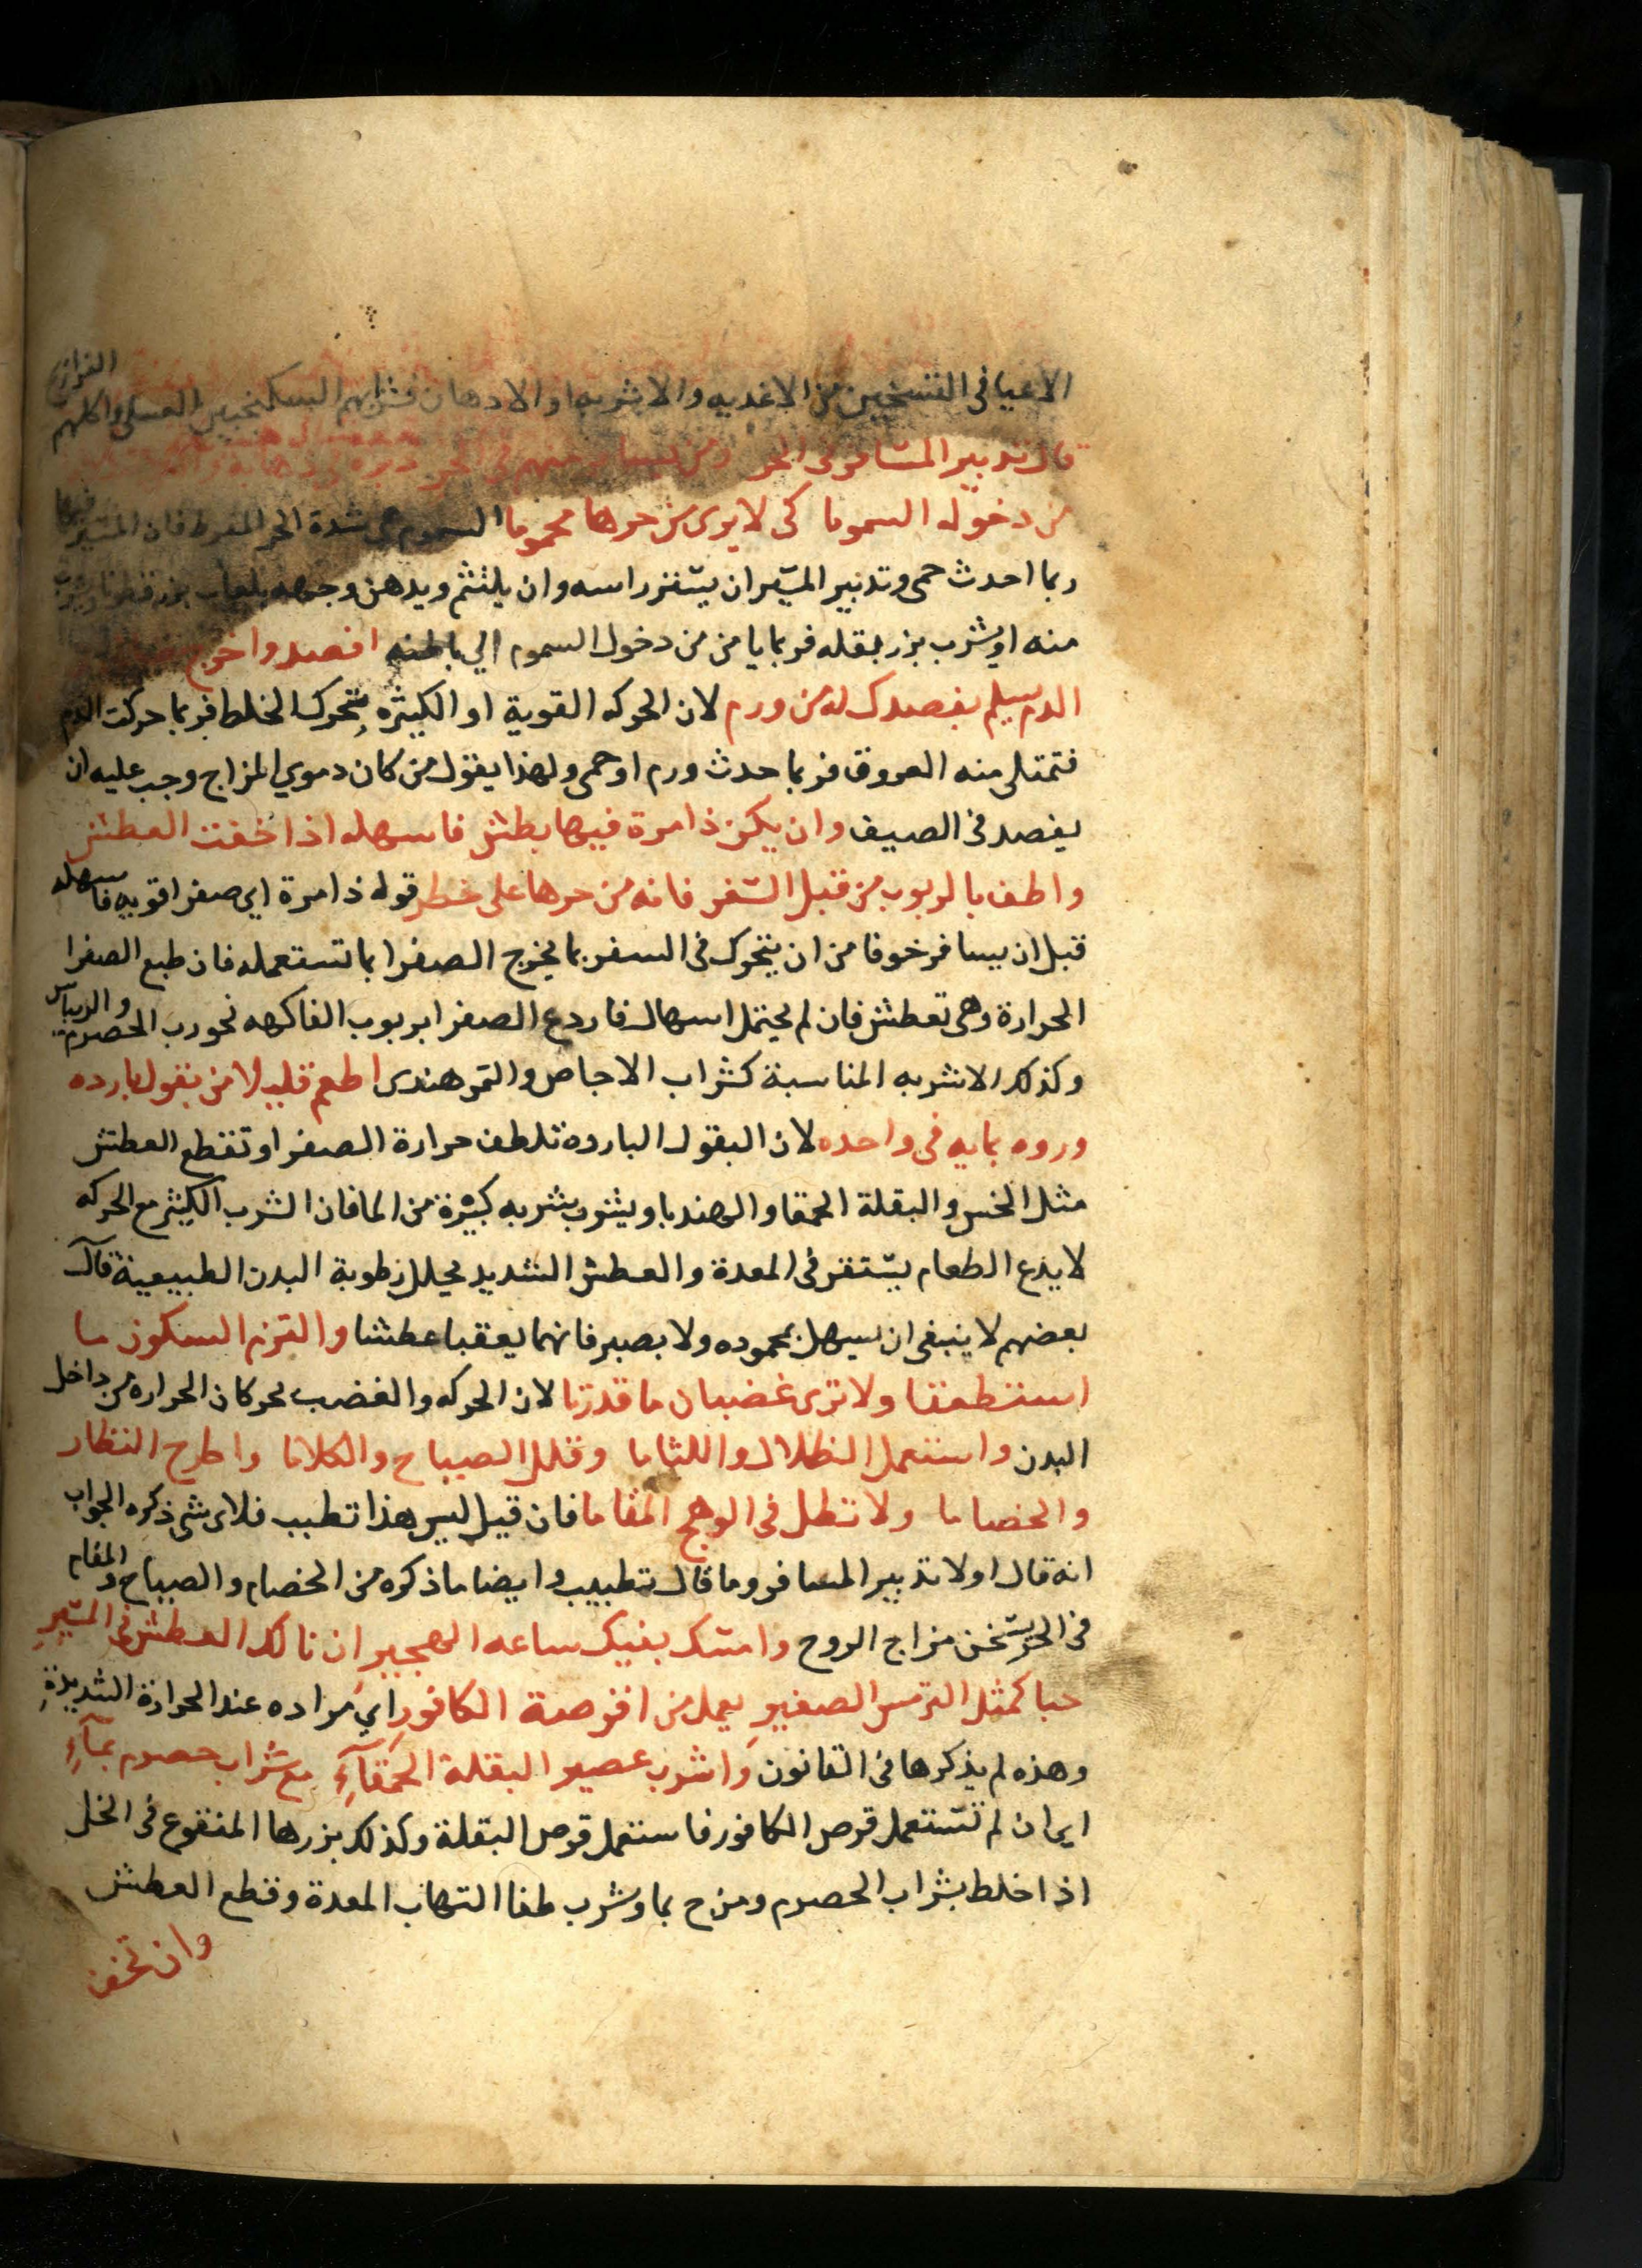 الاعيا فى التسخين من الاغديه والاشربه او الادهان فشرابهم السكنجبين العسلى واكلهم الفراريج
قال تدبير المسافر فى الحر ومن يسافر منهم فى الحر
من دخوله السموما كى لا يرى من حرها محموما السموم هى شدة الحر المفرط فان المسير فيها
ربما احدث حمى وتدبير المسير ان يستر راسه وان يلتثم ويدهن وجهه بلعاب بزر قطونا ويشرب
منه او يشرب بزر بقله فربما يا من من دخول السموم الي باطنه افصد واخرج
الدم سيلم بفصدك له من ورم لان الحركه القوية او الكثيره تتحرك الخلط فربما حركت الدم
فتمتلى منه العروق فربما حدث ورم او حمى ولهذا يقول من كان دموي المزاج وجب عليه ان
يفصد فى الصيف وان يكن ذا مرة فيها بطش فاسهله اذا خفت العطش
واطف بالربوب من قبل السفر فانه من حرها على خطر قوله ذا مرة اي صفرا قويه فاسهله
قبل ان يسافر خوفا من ان يتحرك فى السفر بما يخرج الصفرا بما تستعمله فان طبع الصفرا
الحرارة وهى تعطش فان لم يحتمل اسهال فاردع الصفرا بربوب الفاكهه نحو رب الحصرم والريباس
وكذلك الاشربه المناسبة كشراب الاجاص والتمر هندى اطعم قليلا من بقول بارده
وروه بمايه فى واحده لان البقول البارده تلطف حرارة الصفرا وتقطع العطش
مثل الخس والبقلة الحمقا والهندبا ويشرب شربه كبيرة من الما فان الشرب الكثير مع الحركه
لا يدع الطعام يستقر فى المعدة والعطش الشديد يحلل رطوبة البدن الطبيعية قال
بعضهم لا ينبغى ان يسهل بمحموده ولا بصبر فانهما يعقبا عطشا والتزم السكون ما
استطعتا ولا ترى غضبان ما قدرتا لان الحركه والغضب يحركان الحراره من داخل
البدن واستعمل الظلال واللثاما وقلل الصياح والكلاما واطرح النظار
والخصاما ولا تطل فى الوهج المقاما فان قيل ليس هذا تطبيب فلاى شى ذكره الجواب
انه قال اولا تدبير المسافر وما قال تطبيب وايضا ما ذكره من الخصام والصياح والمقام
فى الحر يسخن مزاج الروح وامسك بفيك ساعه الهجير ان نالك العطش فى المسير
حبا كمثل الترمس الصغير يعمل من اقرصة الكافور اي مراده عند الحرارة الشديدة
وهذه لم يذكرها فى القانون واشرب عصير البقلة الحمقآء مع شراب حصرم بمآء
اي ان لم تستعمل قرص الكافور فاستعمل قرص البقلة وكذلك بزرها المنقوع فى الخل
اذا اخلط بشراب الحصرم ومزج بما وشرب طفا التهاب المعدة وقطع العطش
وان تخف